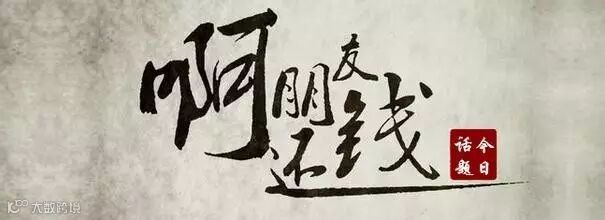 啊朋友
还钱
今日
话题
大数跨境